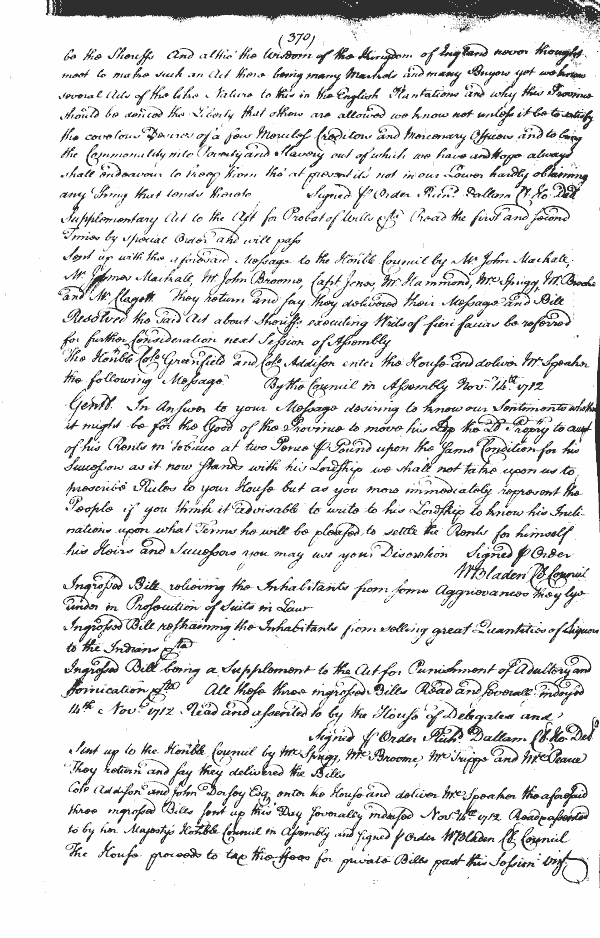 (370)
be the Sheriffs And altho the Wisdom of the Kingdom of England never thought
meet to make such an Act there being many Marshals and many Buyers yet we know
several Acts of the like Nature to this in the English Plantations and why this Province
should be denied the Liberty that others are allowed we know not unless it be to satisfy
the covetous Desires of a few Merciless Creditors and Mercenary Officers and to bring
the Commonality into Poverty and Slavery out of which we have and hope always
shall endeavour to keep them tho at present it's not in our Power hardly obtaining
any thing that tends thereto Signed p Order Richd. Dallam Cl. Ho. Del
Supplementary Act to the Act for Probat of Wills &ca Read the first and second
Times by special Order and will pass
Sent up with the aforesaid Message to the Honble Council by Mr. John Mackall,
Mr. James Mackall, Mr. John Broome, Capt Jones, Mr. Hammond, Mr. Sprigg, Mr. Brooke
and Mr. Clagett. They return and say they delivered their Message and Bill
Resolved the said Act about Sheriffs executing Writs of fieri facias be referred
for further Consideration next Session of Assembly
The Honble Colo. Greenfield and Colo. Addison enter the House and deliver Mr. Speaker
the following Message By the Council in Assembly Novr. 14th. 1712
Gentl. In Answer to your Message desiring to know our Sentiments whether
it might be for the Good of the Province to move his Lsp the Ld. Propry to accept
of his Rents in Tobacco at two Pence p Pound upon the same Condition for his
Successors as it now stands with his Lordship we shall not take upon us to
prescribe Rules to your House but as you more immediately represent the
People if you think it advisable to write to his Lordship to know his Incli-
nations upon what Terms he will be pleased to settle the Rents for himself
his Heirs and Successors you may use your Discretion Signed p Order
WBladen Cl. Council
Ingrossed Bill relieving the Inhabitants from some Aggrievances they lye
under in Prosecution of Suits in Law
Ingrossed Bill restraining the Inhabitants from selling great Quantities of Liquors
to the Indians &ca
Ingrossed Bill being a Supplement to the Act for Punishment of Adultery and
Fornication &ca All these three ingrossed Bills Read and severally indorsed
14th. Novr. 1712 Read and assented to by the House of Delegates and
Signed p Order Richd. Dallam Cl. Ho. Del
Sent up to the Honble Council by Mr. Sprigg, Mr. Broome, Mr. Trippe and Mr. Pearce
They return and say they delivered the Bills
Colo Addison and John Dorsey Esq. enter the House and deliver Mr. Speaker the aforesaid
three ingrossed Bills sent up this Day severally indorsed Novr. 14th. 1712 Read & assented
to by her Majestys Honble Council in Assembly and signed p Order WBladen Cl. Council
The House proceeds to tax the Fees for private Bills past this Session vizt